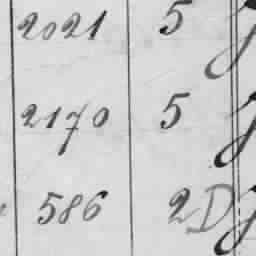 2021 5
2170 5
586 2D